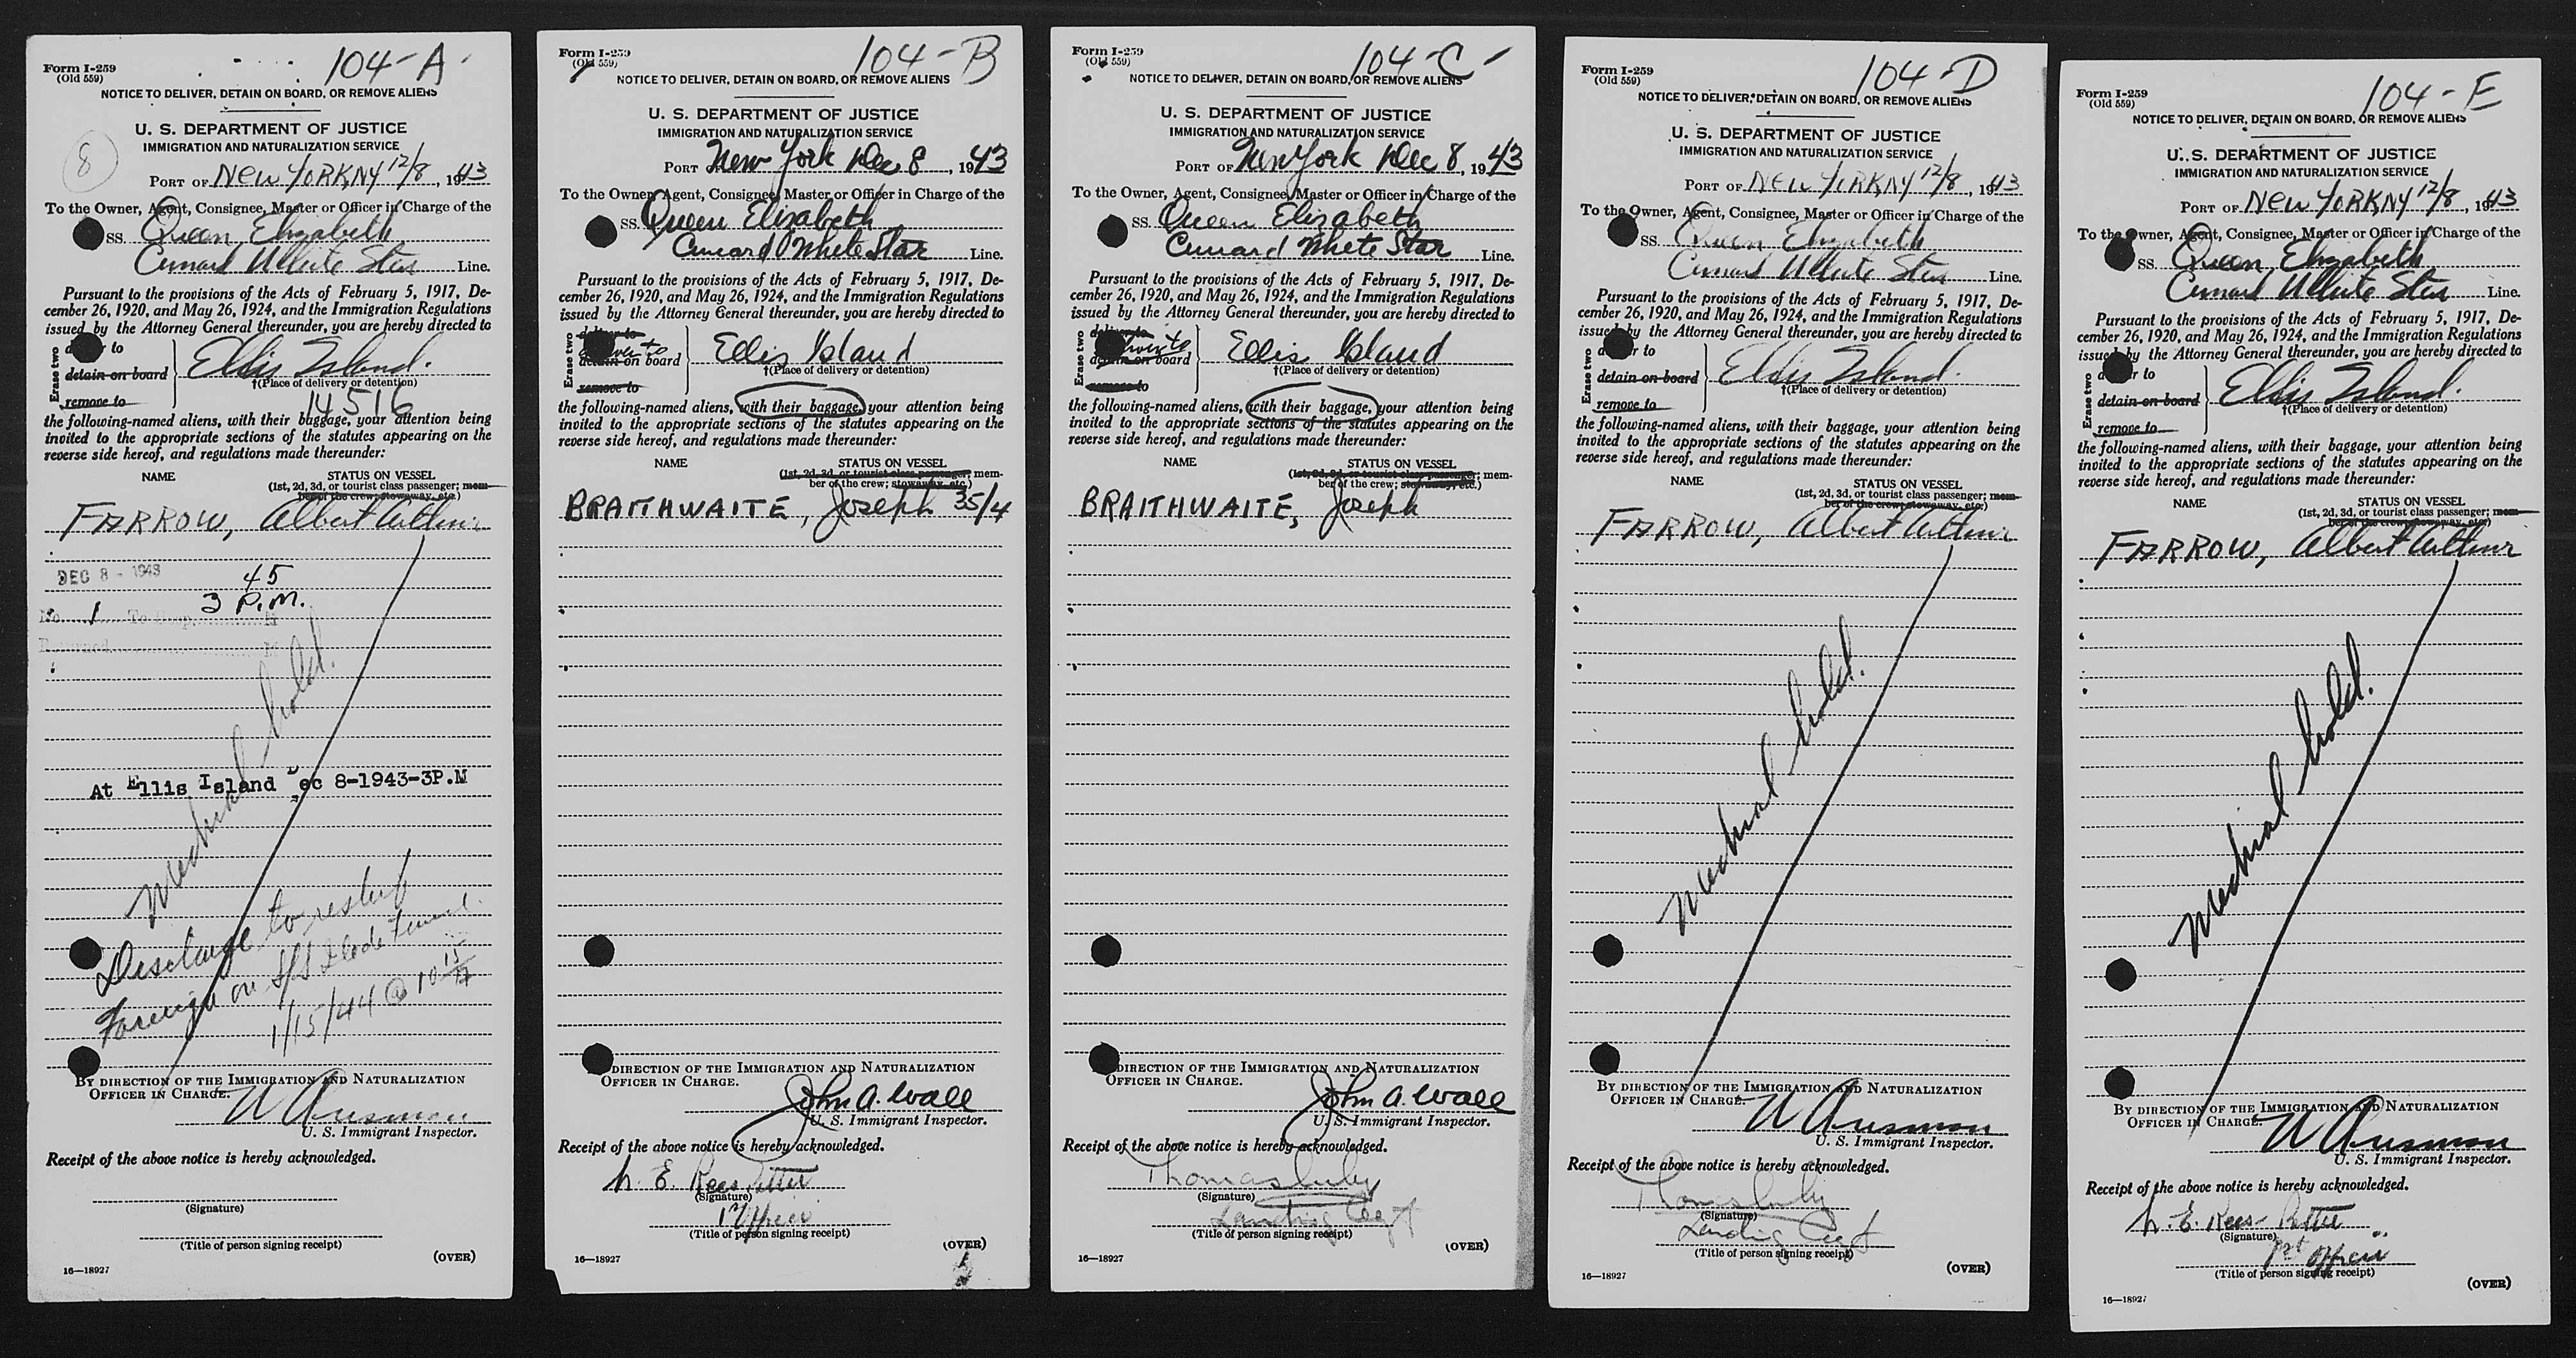 104-A
Form I-259
(Old 559)
NOTICE TO DELIVER, DETAIN ON BOARD, OR REMOVE ALIENS
U. S. DEPARTMENT OF JUSTICE
IMMIGRATION AND NATURALIZATION SERVICE
8
PORT OF NEW YORK, NY 12/8, 1943
To the Owner, Agent, Consignee, Master or Officer in Charge of the
SS. Queen Elizabeth
Cunard White Star Line.
Pursuant to the provisions of the Acts of February 5, 1917, De-
cember 26, 1920, and May 26, 1924, and the Immigration Regulations
issued by the Attorney General thereunder, you are hereby directed to
Erase two
to
detain on board
remove to
Ellis Island.
†(Place of delivery or detention)
14516
the following-named aliens, with their baggage, your attention being
invited to the appropriate sections of the statutes appearing on the
reverse side hereof, and regulations made thereunder:
NAME STATUS ON VESSEL
(1st, 2d, 3d, or tourist class passenger; mem-
ber of the crew; stowaway, etc.)
FARROW, Albert Arthur
DEC 8 - 1943
45
3 P.M.
No. 1 To Hosp. M
Returned M
Medical hold.
At Ellis Island Dec 8-1943-3P.M
Discharge to reship
Foreign on S/S
1/15/44 @ 10 15
BY DIRECTION OF THE IMMIGRATION AND NATURALIZATION
OFFICER IN CHARGE.
U. S. Immigrant Inspector.
Receipt of the above notice is hereby acknowledged.
(Signature)
(Title of person signing receipt)
(OVER)
16—18927
104-B
Form I-259
(Old 559)
NOTICE TO DELIVER, DETAIN ON BOARD, OR REMOVE ALIENS
U. S. DEPARTMENT OF JUSTICE
IMMIGRATION AND NATURALIZATION SERVICE
PORT New York Dec 8, 1943
To the Owner, Agent, Consignee, Master or Officer in Charge of the
SS. Queen Elizabeth
Cunard White Star Line.
Pursuant to the provisions of the Acts of February 5, 1917, De-
cember 26, 1920, and May 26, 1924, and the Immigration Regulations
issued by the Attorney General thereunder, you are hereby directed to
Erase two
deliver to
detain on board
remove to
Ellis Island
†(Place of delivery or detention)
the following-named aliens, with their baggage, your attention being
invited to the appropriate sections of the statutes appearing on the
reverse side hereof, and regulations made thereunder:
NAME STATUS ON VESSEL
(1st, 2d, 3d, or tourist class passenger; mem-
ber of the crew; stowaway, etc.)
BRAITHWAITE, Joseph 35/4
DIRECTION OF THE IMMIGRATION AND NATURALIZATION
OFFICER IN CHARGE.
John A. Wall
U. S. Immigrant Inspector.
Receipt of the above notice is hereby acknowledged.
h. E. Rees Potter
(Signature)
1st Officer
(Title of person signing receipt)
(OVER)
16—18927
104-C
Form I-259
(Old 559)
NOTICE TO DELIVER, DETAIN ON BOARD, OR REMOVE ALIENS
U. S. DEPARTMENT OF JUSTICE
IMMIGRATION AND NATURALIZATION SERVICE
PORT OF New York Dec 8, 1943
To the Owner, Agent, Consignee, Master or Officer in Charge of the
SS. Queen Elizabeth
Cunard White Star Line.
Pursuant to the provisions of the Acts of February 5, 1917, De-
cember 26, 1920, and May 26, 1924, and the Immigration Regulations
issued by the Attorney General thereunder, you are hereby directed to
Erase two
deliver to
detain on board
remove to
Ellis Island
†(Place of delivery or detention)
the following-named aliens, with their baggage, your attention being
invited to the appropriate sections of the statutes appearing on the
reverse side hereof, and regulations made thereunder:
NAME STATUS ON VESSEL
(1st, 2d, 3d, or tourist class passenger; mem-
ber of the crew; stowaway, etc.)
BRAITHWAITE, Joseph
DIRECTION OF THE IMMIGRATION AND NATURALIZATION
OFFICER IN CHARGE.
John A. Wall
U. S. Immigrant Inspector.
Receipt of the above notice is hereby acknowledged.
Thomas
(Signature)
Landing Agt
(Title of person signing receipt)
(OVER)
16—18927
104-D
Form I-259
(Old 559)
NOTICE TO DELIVER, DETAIN ON BOARD, OR REMOVE ALIENS
U. S. DEPARTMENT OF JUSTICE
IMMIGRATION AND NATURALIZATION SERVICE
PORT OF NEW YORK NY 12/8, 1943
To the Owner, Agent, Consignee, Master or Officer in Charge of the
SS. Queen Elizabeth
Cunard White Star Line.
Pursuant to the provisions of the Acts of February 5, 1917, De-
cember 26, 1920, and May 26, 1924, and the Immigration Regulations
issued by the Attorney General thereunder, you are hereby directed to
Erase two
to
detain on board
remove to
Ellis Island.
†(Place of delivery or detention)
the following-named aliens, with their baggage, your attention being
invited to the appropriate sections of the statutes appearing on the
reverse side hereof, and regulations made thereunder:
NAME STATUS ON VESSEL
(1st, 2d, 3d, or tourist class passenger; mem-
ber of the crew; stowaway, etc.)
FARROW, Albert Arthur
Medical hold.
BY DIRECTION OF THE IMMIGRATION AND NATURALIZATION
OFFICER IN CHARGE.
U. S. Immigrant Inspector.
Receipt of the above notice is hereby acknowledged.
Thomas
(Signature)
Landing Agt
(Title of person signing receipt)
(OVER)
16—18927
104-E
Form I-259
(Old 559)
NOTICE TO DELIVER, DETAIN ON BOARD, OR REMOVE ALIENS
U. S. DEPARTMENT OF JUSTICE
IMMIGRATION AND NATURALIZATION SERVICE
PORT OF NEW YORK, NY 12/8, 1943
To the Owner, Agent, Consignee, Master or Officer in Charge of the
SS. Queen Elizabeth
Cunard White Star Line.
Pursuant to the provisions of the Acts of February 5, 1917, De-
cember 26, 1920, and May 26, 1924, and the Immigration Regulations
issued by the Attorney General thereunder, you are hereby directed to
Erase two
to
detain on board
remove to
Ellis Island.
†(Place of delivery or detention)
the following-named aliens, with their baggage, your attention being
invited to the appropriate sections of the statutes appearing on the
reverse side hereof, and regulations made thereunder:
NAME STATUS ON VESSEL
(1st, 2d, 3d, or tourist class passenger; mem-
ber of the crew; stowaway, etc.)
FARROW, Albert Arthur
Medical hold.
BY DIRECTION OF THE IMMIGRATION AND NATURALIZATION
OFFICER IN CHARGE.
U. S. Immigrant Inspector.
Receipt of the above notice is hereby acknowledged.
h. E. Rees-Potter
(Signature)
1st Officer
(Title of person signing receipt)
(OVER)
16—18927